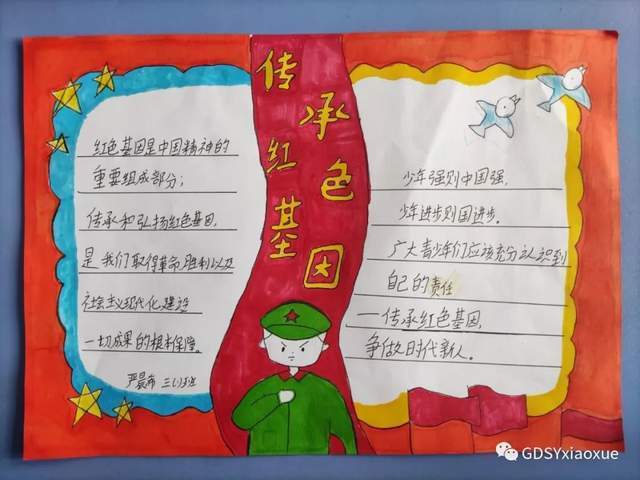 传承红色基因
红色基因是中国精神的
重要组成部分；
传承和弘扬红色基因，
是我们取得革命胜利以及
社会主义现代化建设
一切成果的根本保障。
三(1)班
少年强则中国强，
少年进步则国进步。
广大青少年们应该充分认识到
自己的责任
—传承红色基因，
争做时代新人。
GDSYxiaoxue